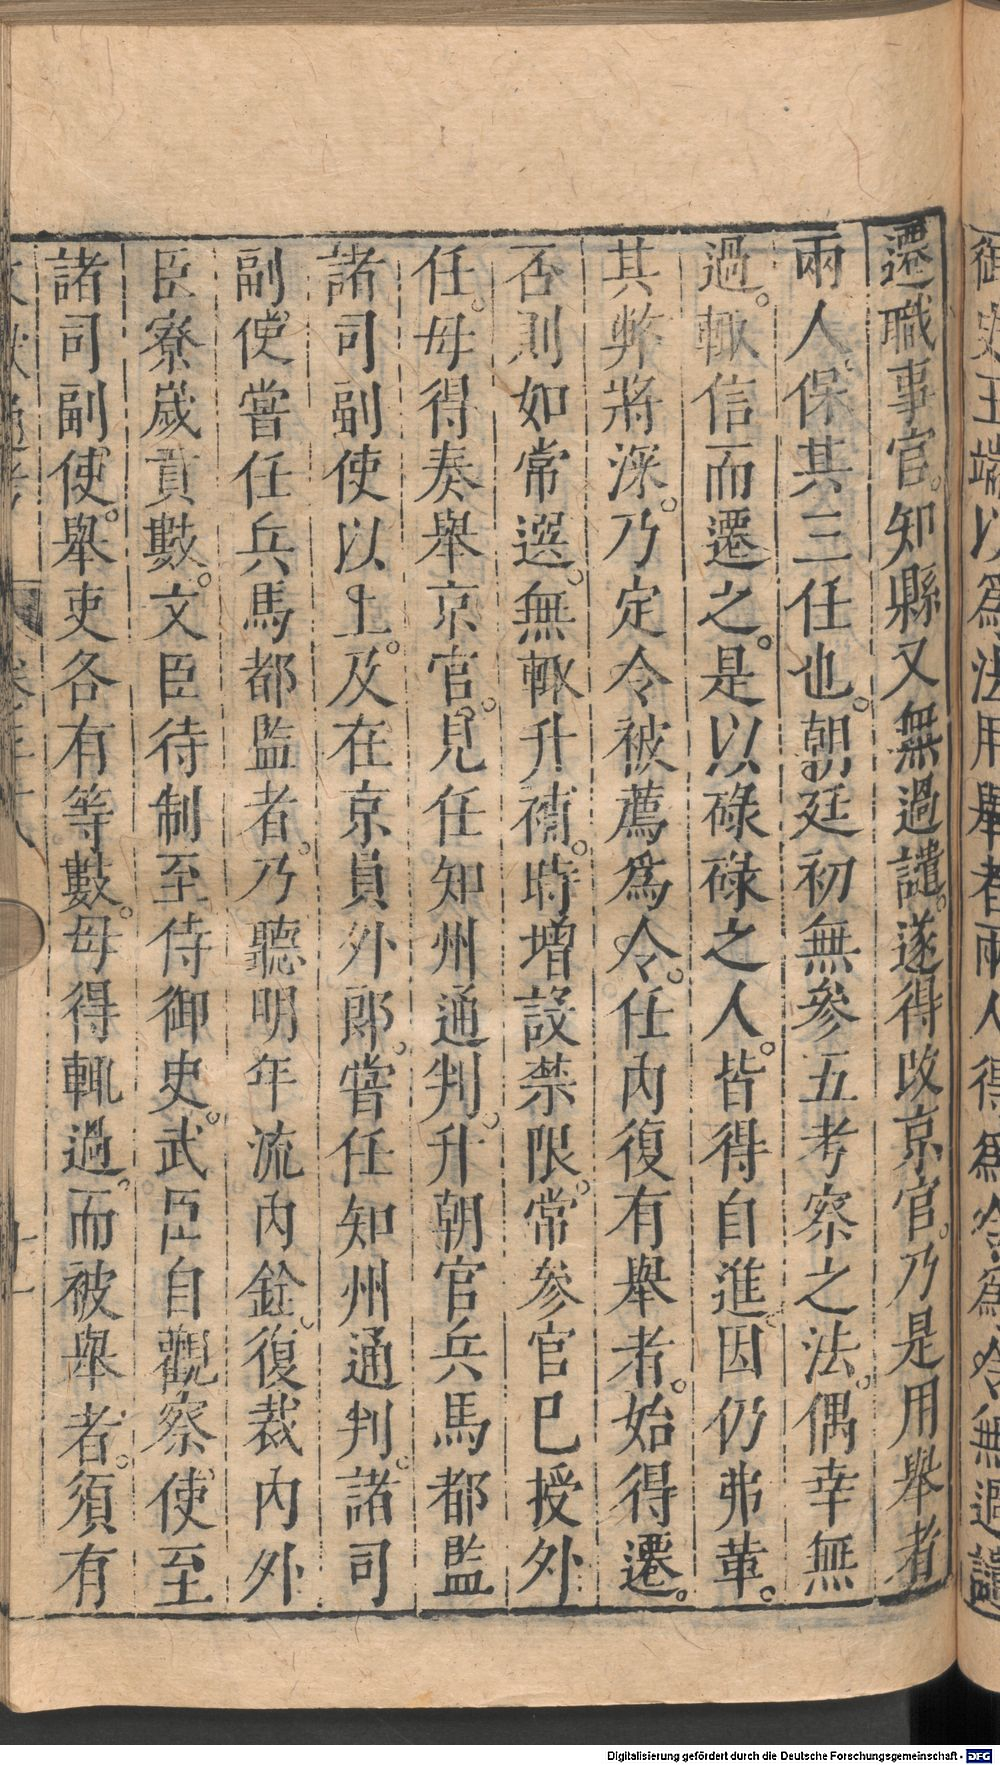 御史王端以爲法用舉者兩人得爲令爲令無過譴
遷職事官。知縣又無過譴。遂得改京官。乃是用舉者
兩人保其三任也。朝廷初無參五考察之法。偶幸無
過。輙信而遷之。是以碌碌之人。皆得自進因仍弗革。
其弊將深。乃定令被薦爲令。任内復有舉者。始得遷。
否則如常選。無輙升補。時增設禁限。常参官巳授外
任。毋得奏舉京官。見任知州通判。升朝官兵馬都監
諸司副使以上。及在京員外郎。嘗任知州通判。諸司
副使嘗任兵馬都監者。乃聽明年流内銓。復裁内外
臣寮歲貢數。文臣待制至侍御史。武臣自觀察使至
諸司副使。舉吏各有等數。毋得輒過。而被舉者。須有
Digitalisierung gefördert durch die Deutsche Forschungsgemeinschaft - DFG